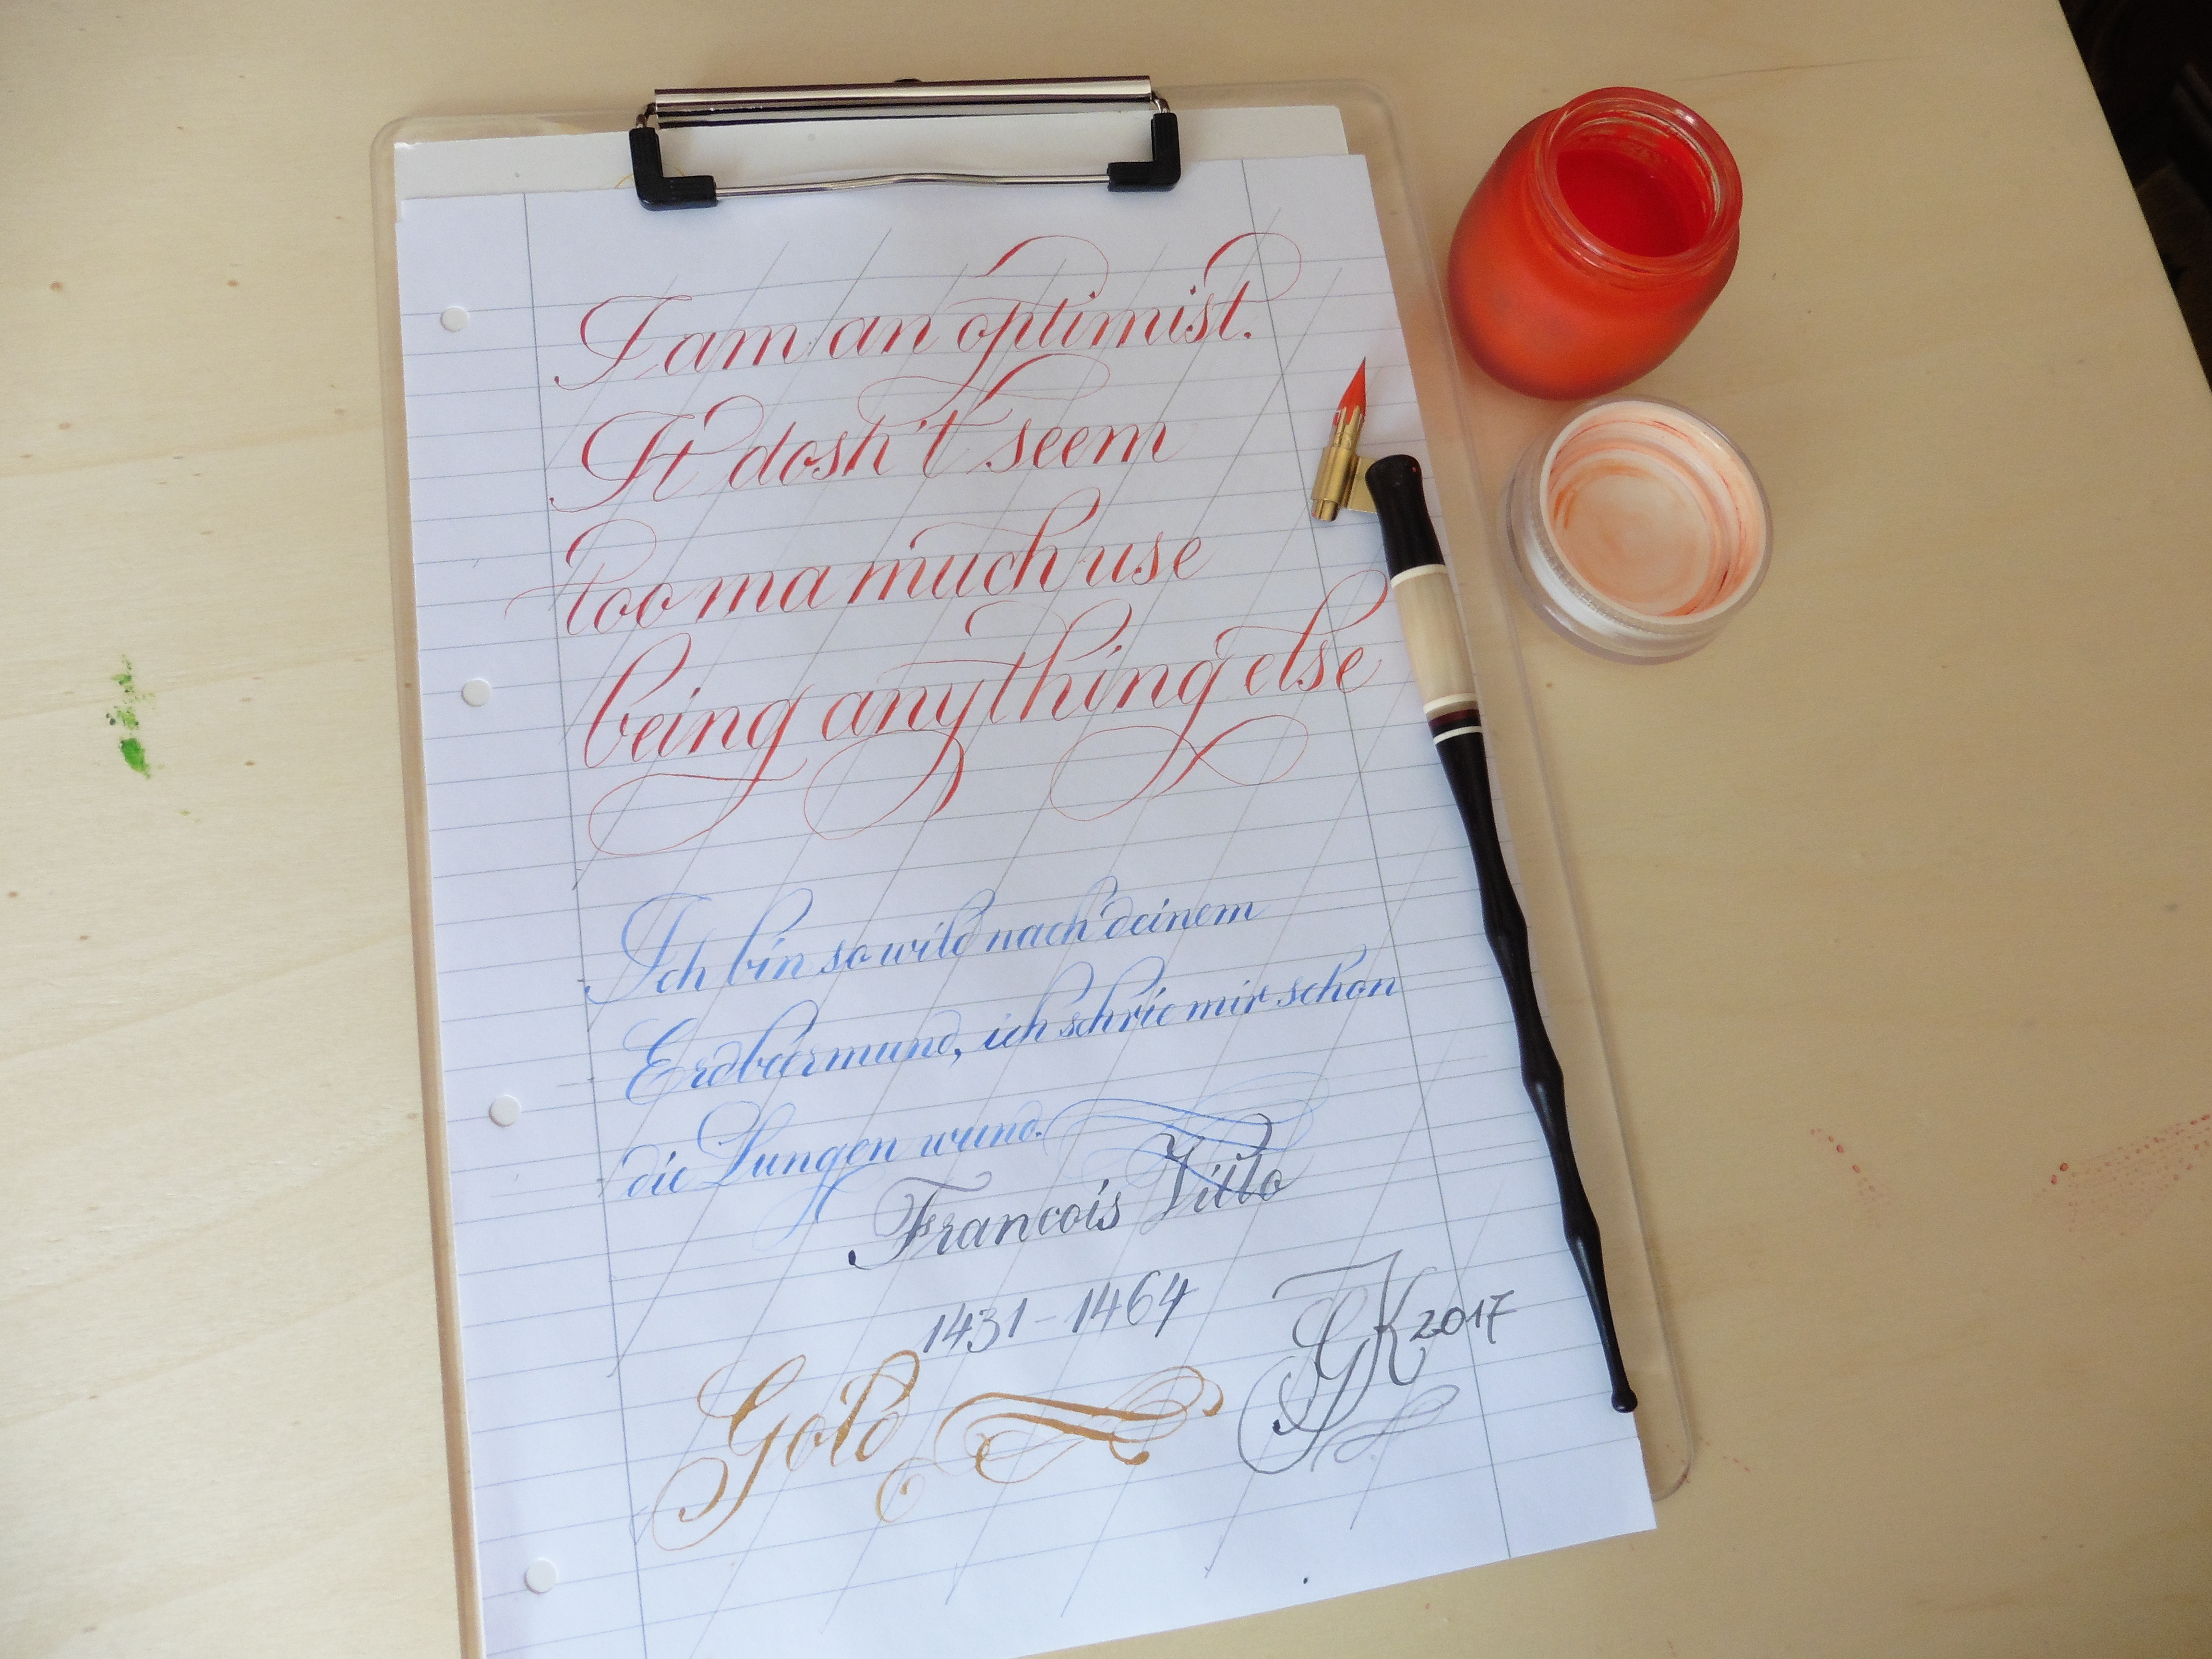 I am an optimist.
It dosn't seem
too ma much use
being anything else
Ich bin so wild nach deinem
Erdbeermund, ich schrie mir schon
die Lungen wund.
Francois Villo
1431-1464
GK 2017
Gold